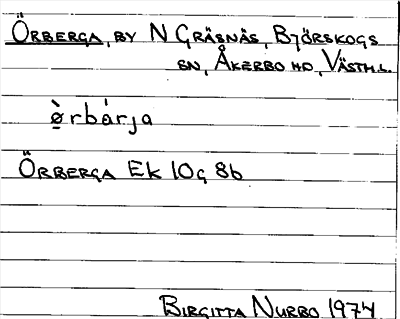 ÖRBERGA, BY N GRÄSNÄS, BJÖRSKOGS
SN, ÅKERBO HD, VÄSTM.L.
ø̠̀rbárja
ÖRBERGA EK 10G 8b
BIRGITTA NURBO 1974